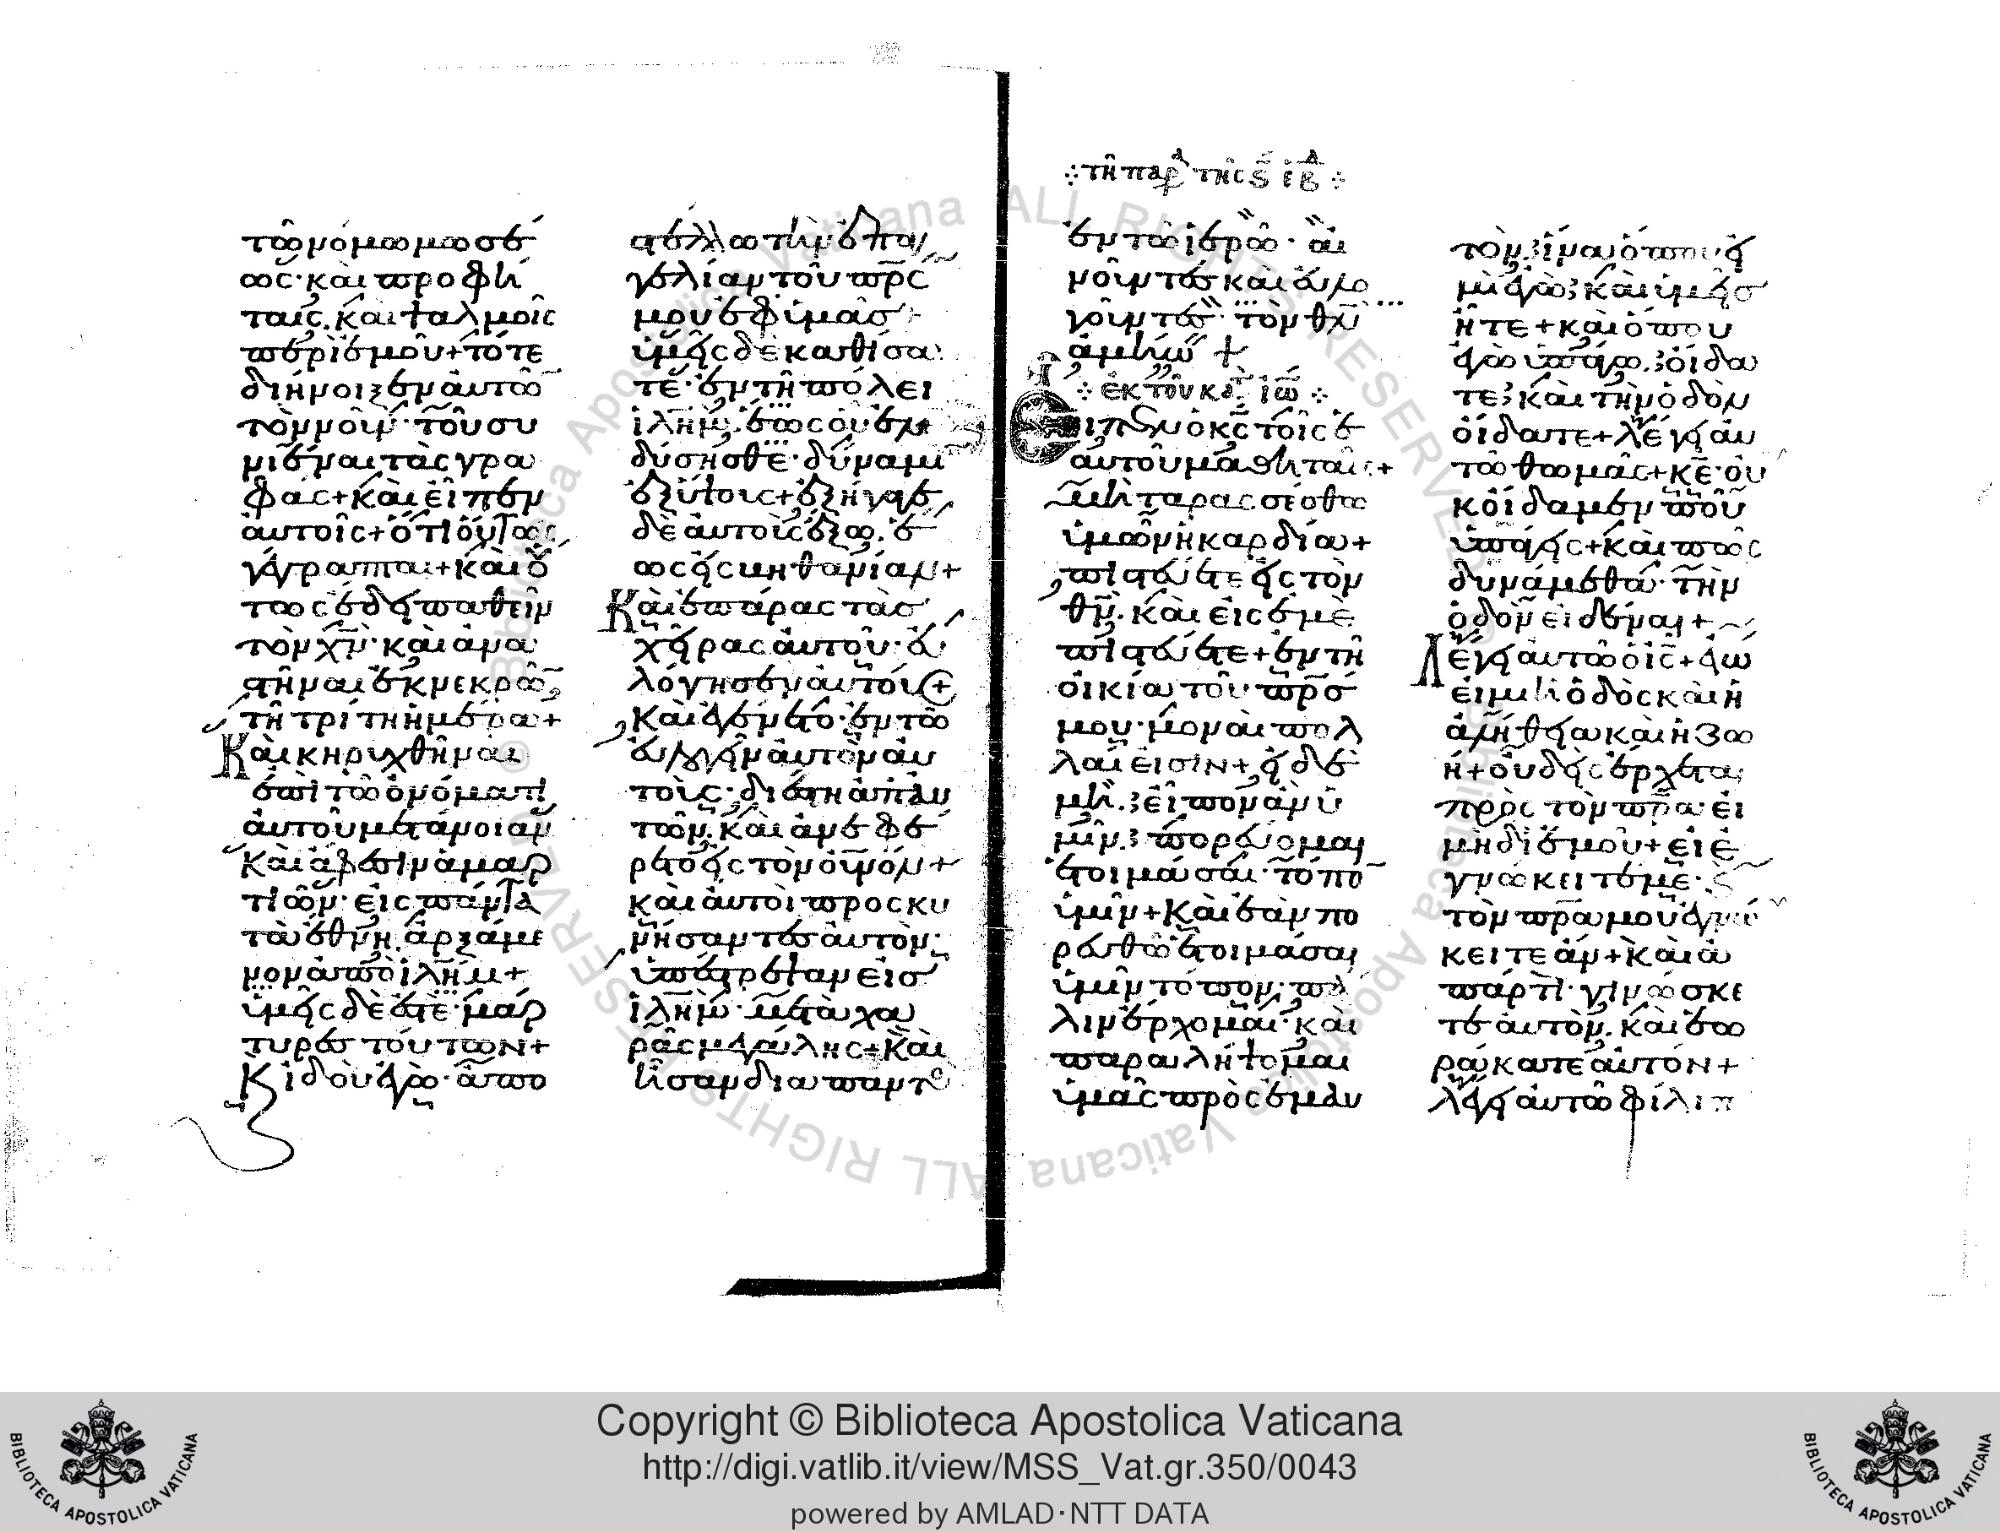 τῶ νόμω μωσέ
ως· καὶ προφή
ταις. καὶ ψαλμοῖς
περὶ ἐμοῦ + τότε
διήνοιξεν αὐτῶν
τὸν νοῦν· τοῦ συ
νιέναι τὰς γρα
φάς + καὶ εἶπεν
αὐτοῖς + ὅτι οὕτως
γέγραπται + καὶ οὕ
τως ἔδει παθεῖν
τὸν χν· καὶ ἀνα
στῆναι ἐκ νεκρῶν
τῆ τρίτη ἡμέρα +
Καὶ κηρυχθῆναι
ἐπὶ τῶ ὀνόματι
αὐτοῦ μετάνοιαν
καὶ ἄφεσιν ἁμαρ
τιῶν· εἰς πάντα
τὰ ἔθνη. ἀρξάμε
νον ἀπὸ ἱλήμ +
ὑμεῖς δέ ἐστε μάρ
τυρες τούτων +
Κ ἰδοὺ ἐγὼ· ἀπο
στέλλω τὴν ἐπαγ
γελίαν τοῦ πρς
μου ἐφ ὑμᾶς
ὑμεῖς δὲ καθίσα
τε· ἐν τῆ πόλει
ἱλήμ. ἕως οὗ ἐν
δύσησθε· δύναμιν
ἐξ ὕψους + ἐξήγαγε
δὲ αὐτοὺς ἔξω. ἕ
ως εἰς βηθανίαν +
Καὶ ἐπάρας τὰς
χεῖρας αὐτοῦ· εὐ
λόγησεν αὐτούς +
καὶ ἐγένετο· ἐν τῶ
εὐλογεῖν αὐτὸν αὐ
τοὺς· διέστη ἀπ αὐ
τῶν. καὶ ἀνεφέ
ρετο εἰς τὸν οὐνόν +
καὶ αὐτοὶ προσκυ
νήσαντες αὐτὸν·
ὑπέστρεψαν εἰς
ἱλήμ· μετὰ χα
ρᾶς μεγάλης + καὶ
ἦσαν διαπαντὸς
τῆ παρ τῆς ϛ ἑβδ
ἐν τῶ ἱερῶ· αἰ
νοῦντες καὶ εὐλο
γοῦντες τὸν θν
ἀμήν +
ἐκ τοῦ κατ ἰω
Εἶπεν ὁ κς τοῖς ἑ
αὐτοῦ μαθηταῖς +
μὴ ταρασσέσθω
ὑμῶν ἡ καρδία +
πιστεύετε εἰς τὸν
θν. καὶ εἰς ἐμὲ
πιστεύετε + ἐν τῆ
οἰκία τοῦ πρς
μου· μοναὶ πολ
λαί εἰσιν + εἰ δὲ
μή. εἶπον ἂν ὑ
μῖν. πορεύομαι
ἑτοιμάσαι· τόπον
ὑμῖν + καὶ ἐὰν πο
ρευθῶ ἑτοιμάσαι
ὑμῖν τόπον· πά
λιν ἔρχομαι· καὶ
παραλήψομαι
ὑμᾶς πρὸς ἐμαυ
τόν. ἵνα ὅπου εἰ
μὶ ἐγὼ καὶ ὑμεῖς
ἦτε + καὶ ὅπου
ἐγὼ ὑπάγω. οἴδα
τε καὶ τὴν ὁδὸν
οἴδατε + λέγει αὐ
τῶ θωμᾶς + κε· οὐ
κ οἴδαμεν ποῦ
ὑπάγεις + καὶ πῶς
δυνάμεθα· τὴν
ὁδὸν εἰδέναι +
Λέγει αὐτῶ ὁ ις + ἐγώ
εἰμι ἡ ὁδὸς καὶ ἡ
ἀλήθεια καὶ ἡ ζω
ή + οὐδεὶς ἔρχεται
πρὸς τὸν πρα· εἰ
μὴ δι ἐμοῦ + εἰ ἐ
γνώκειτέ με· ϗ
τὸν πρα μου ἐγνώ
κειτε ἄν + καὶ ἀ
πάρτι· γινώσκε
τε αὐτὸν. καὶ ἑω
ράκατε αὐτόν +
λέγει αὐτῶ φίλιπ
Copyright © Biblioteca Apostolica Vaticana
http://digi.vatlib.it/view/MSS_Vat.gr.350/0043
powered by AMLAD·NTT DATA
BIBLIOTECA APOSTOLICA VATICANA
BIBLIOTECA APOSTOLICA VATICANA